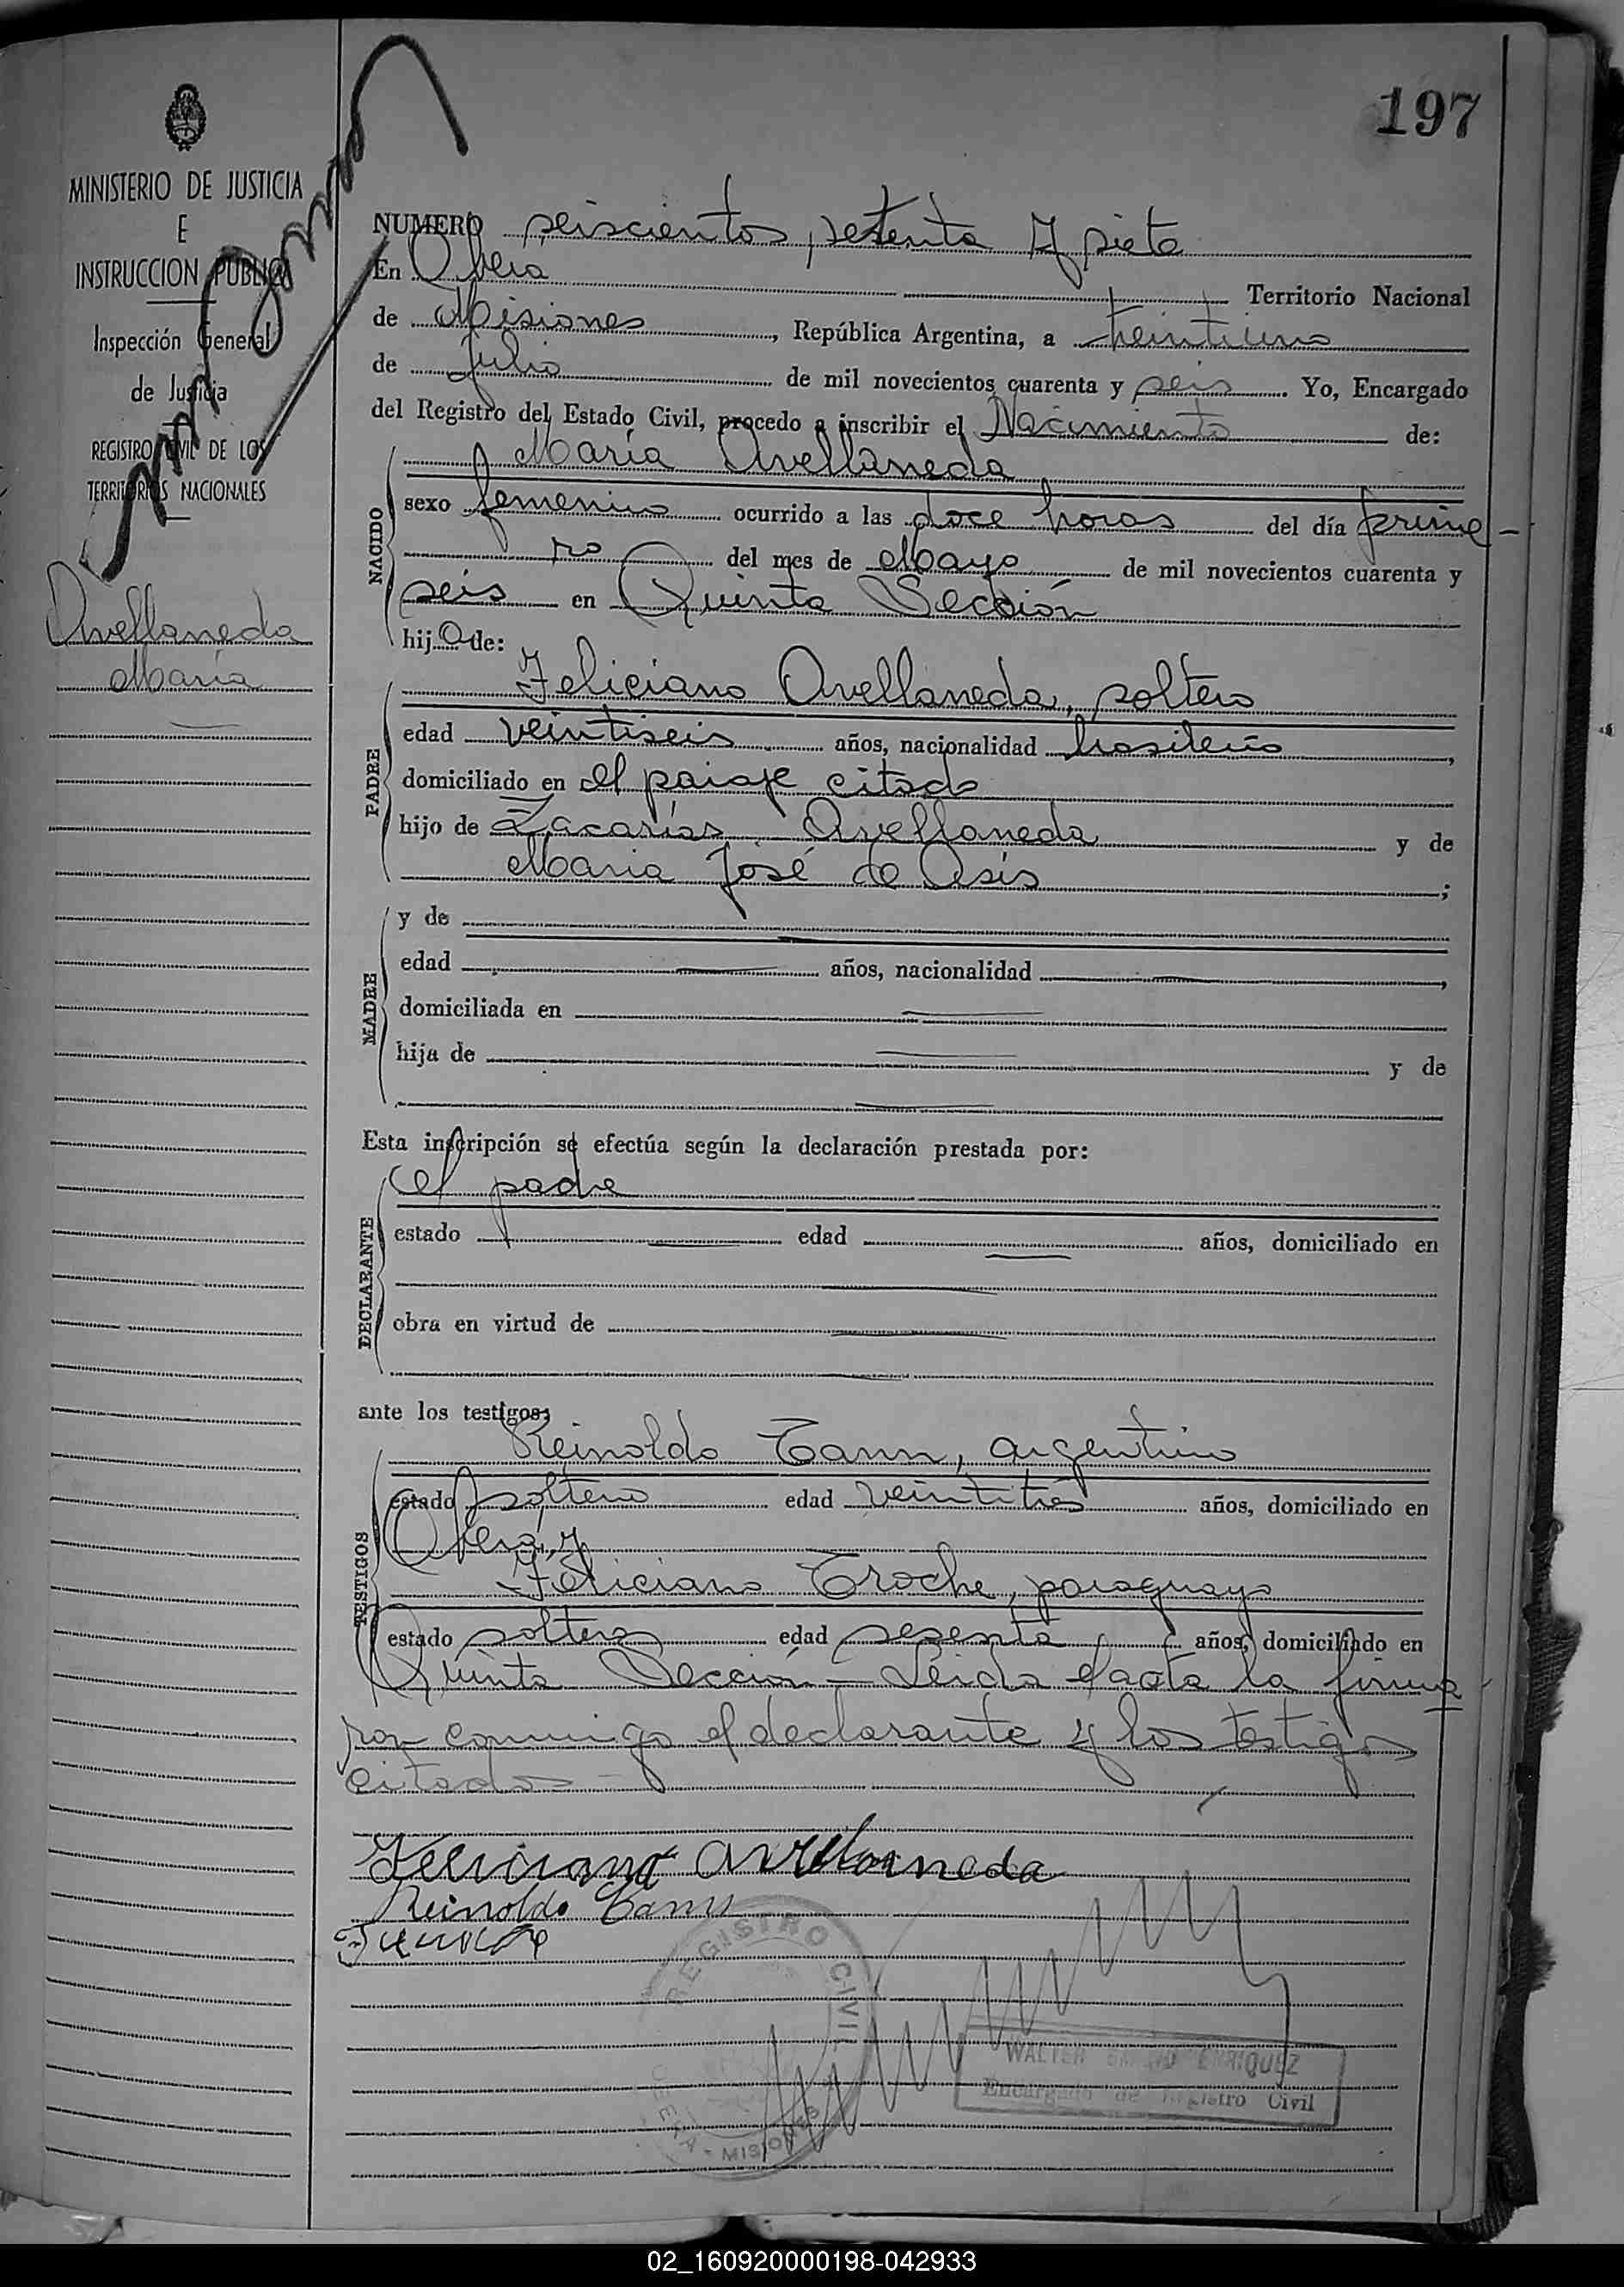 197
MINISTERIO DE JUSTICIA
E
INSTRUCCION PUBLICA
Inspección General
de Justicia
REGISTRO CIVIL DE LOS
TERRITORIOS NACIONALES
Avellaneda
Maria
NUMERO seiscientos setenta y siete
En Obera Territorio Nacional
de Misiones, República Argentina, a treintiuno
de Julio de mil novecientos cuarenta y seis. Yo, Encargado
del Registro del Estado Civil, procedo a inscribir el Nacimiento de:
NACIDO
María Avellaneda
sexo femenino ocurrido a las doce horas del día prime-
ro del mes de Mayo de mil novecientos cuarenta y
seis en Quinta Sección
hija de:
PADRE
Feliciano Avellaneda, soltero
edad veintiseis años, nacionalidad brasileño,
domiciliado en el paraje citado
hijo de Zacarías Avellaneda y de
Maria José de Asis;
MADRE
y de
edad años, nacionalidad
domiciliada en
hija de y de
Esta inscripción se efectúa según la declaración prestada por:
DECLARANTE
el padre
estado edad años, domiciliado en
obra en virtud de
ante los testigos:
TESTIGOS
Reinoldo Tann, argentino
estado soltero edad veintitrés años, domiciliado en
Oberá, y
Feliciano Troche, paraguayo
estado soltero edad sesenta años, domiciliado en
Quinta Sección - Leida el acta la firma
ron conmigo el declarante y los testigos
citados -
Feliciano avellaneda
Reinoldo Tann
REGISTRO CIVIL
OBERA - MISIONES
WALTER ENRIQUEZ
Encargado de Registro Civil
02_160920000198-042933